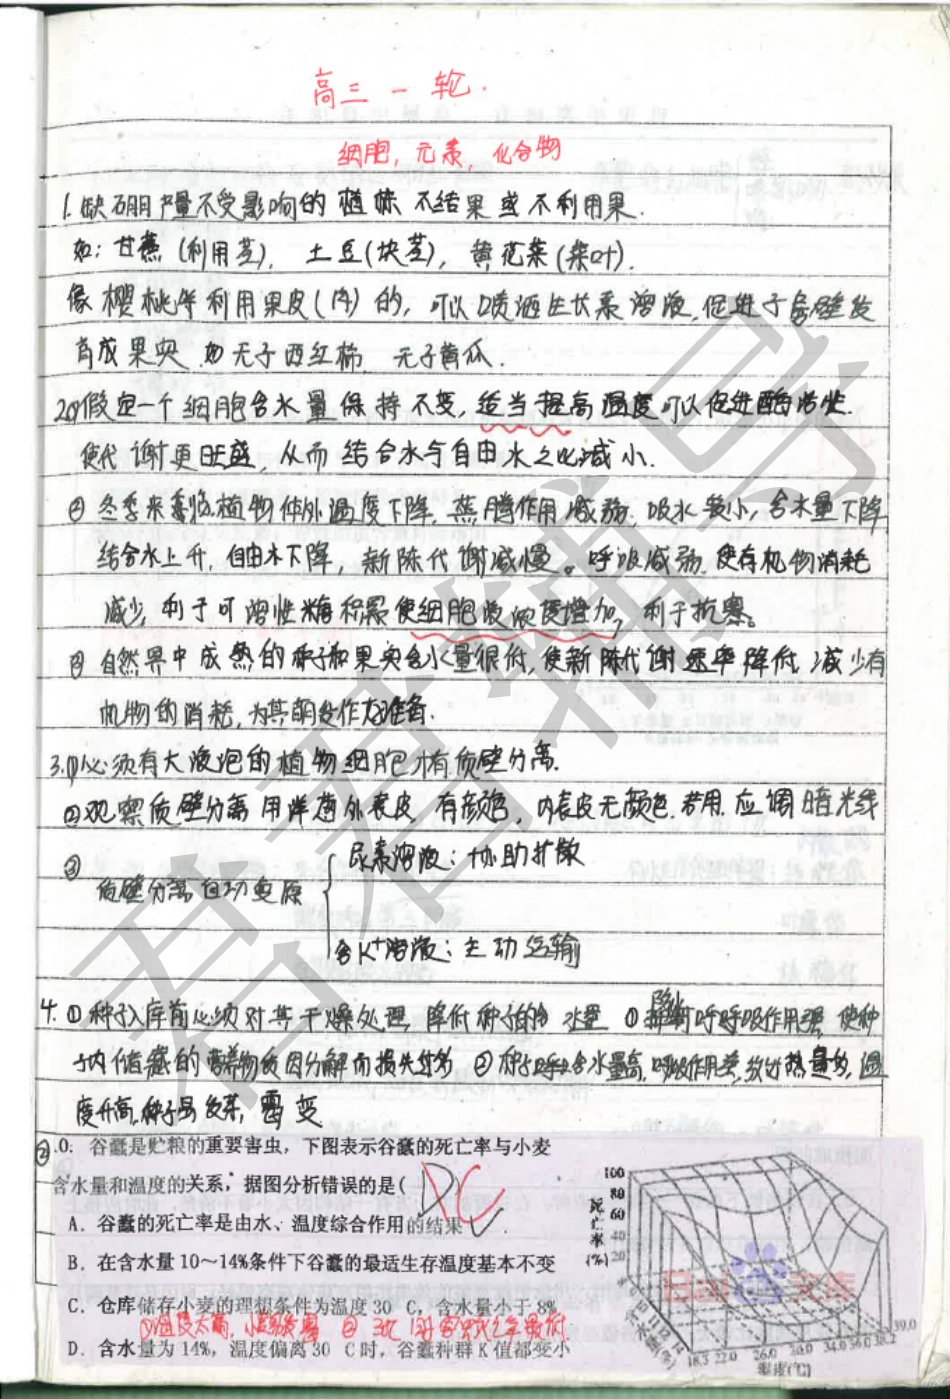 高三一轮.
细胞,元素,化合物
1.缺硼产量不受影响的植株 不结果或不利用果.
如:甘蔗(利用茎), 土豆(块茎), 黄花菜(菜叶).
像樱桃等利用果皮(肉)的,可以喷洒生长素溶液,促进子房壁发
育成果实 如无子西红柿 无子黄瓜.
2.①假定一个细胞含水量保持不变,适当提高温度可以促进酶活性.
使代谢更旺盛,从而结合水与自由水之比减小.
②冬季来临植物体外温度下降,蒸腾作用减弱,吸水减小,含水量下降
结合水上升,自由水下降,新陈代谢减慢。呼吸减弱,使有机物消耗
减少,利于可溶性糖积累使细胞液浓度增加,利于抗寒。
③自然界中成熟的种子和果实含水量很低,使新陈代谢速率降低,减少有
机物的消耗,为其萌发作准备.
3.①必须有大液泡的植物细胞才有质壁分离.
②观察质壁分离用洋葱外表皮,有颜色,内表皮无颜色.若用,应调暗光线
③质壁分离自动复原
尿素溶液:协助扩散
含K⁺溶液:主动运输
4.①种子入库前必须对其干燥处理,降低种子的含水量 ①降时呼吸作用强,使种
子内储藏的营养物质因分解而损失过多 ②种子含水量高,呼吸作用,放出热量多,温
度升高,种子易发芽,霉变
②.0:谷蠹是贮粮的重要害虫,下图表示谷蠹的死亡率与小麦
含水量和温度的关系,据图分析错误的是( DC
A.谷蠹的死亡率是由水、温度综合作用的结果
B.在含水量10~14%条件下谷蠹的最适生存温度基本不变
C.仓库储存小麦的理想条件为温度30 C,含水量小于8%
①温度太高,小麦易发霉 ②
D.含水量为14%,温度偏离30 C时,谷蠹种群K值都变小
死亡率(%)
100
80
60
40
20
11 12 14
18.3 22.0 26.0 30.0 34.0 36.0 38.2 39.0
温度(℃)
Bai 文库
君君辅导